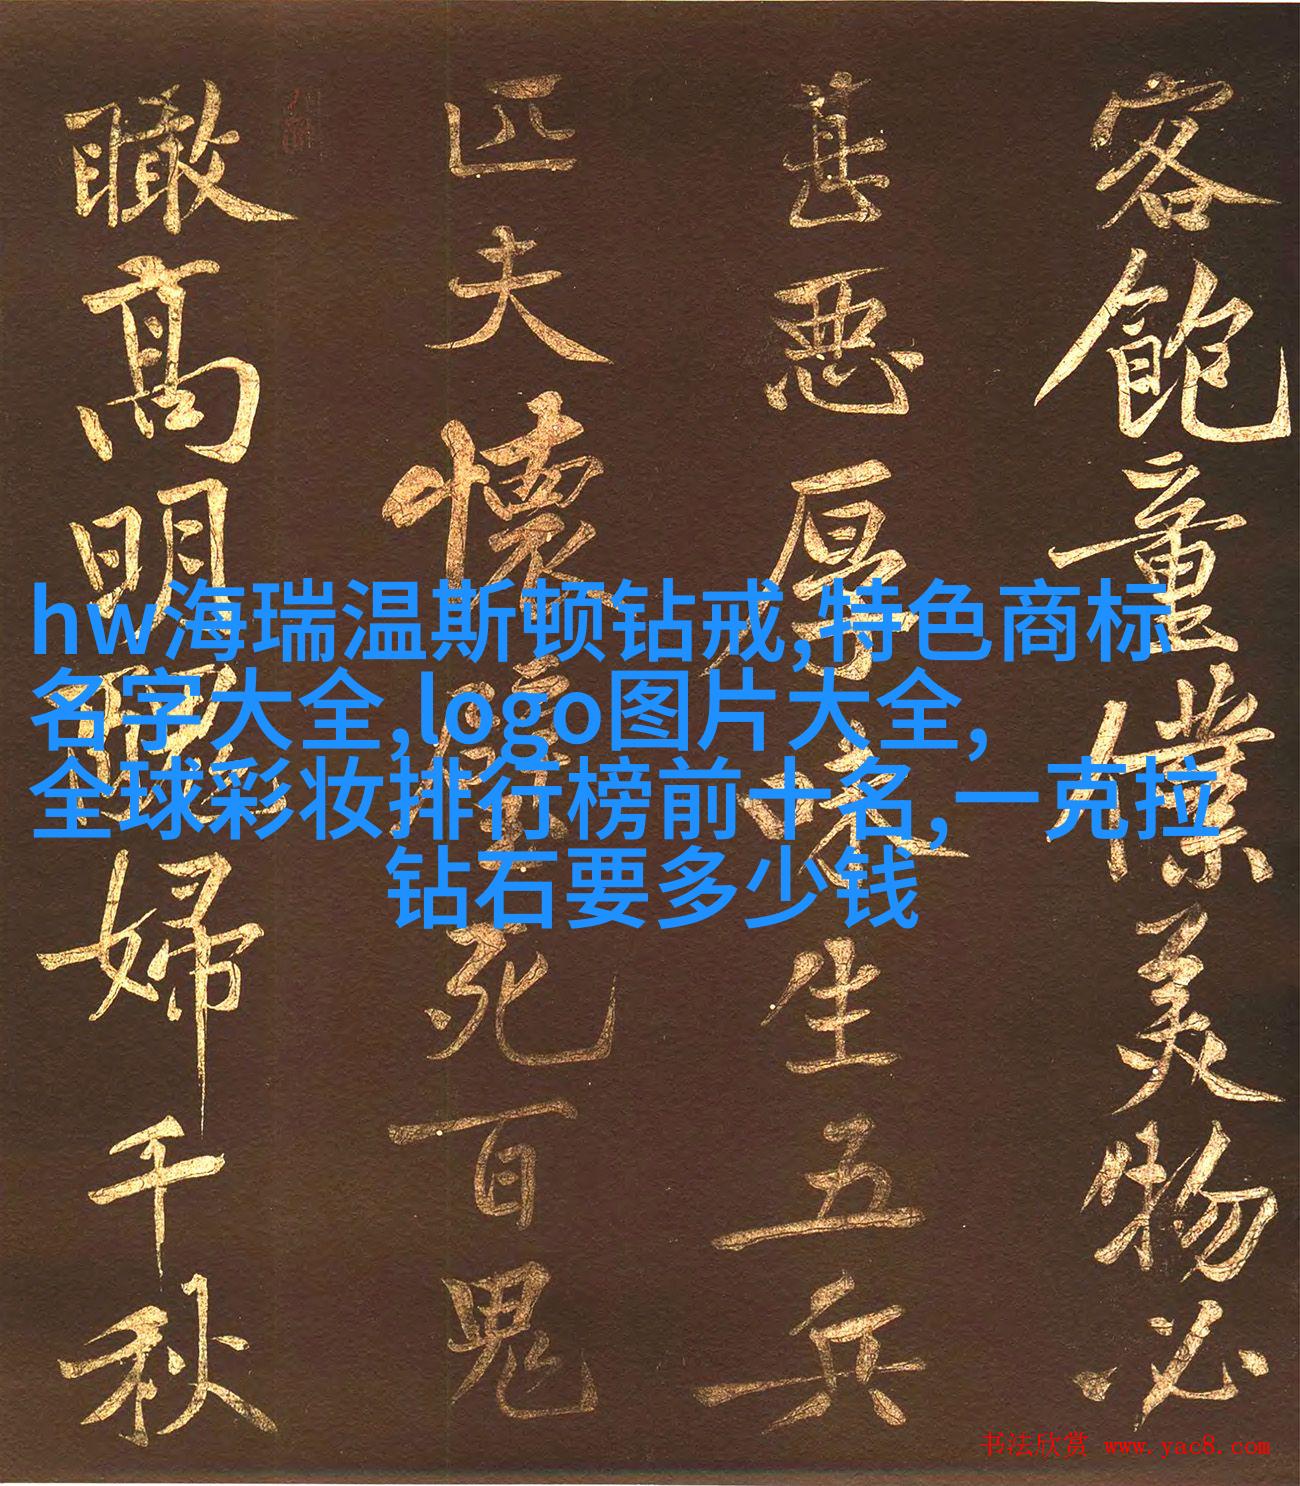 客飽童僕美物必
甚惡厚味生五兵
匹夫懷璧死百鬼
瞰高明醜婦千秋
hw海瑞温斯顿钻戒,特色商标
名字大全,logo图片大全,
全球彩妆排行榜前十名,一克拉
钻石要多少钱
书法欣赏 www.yac8.com